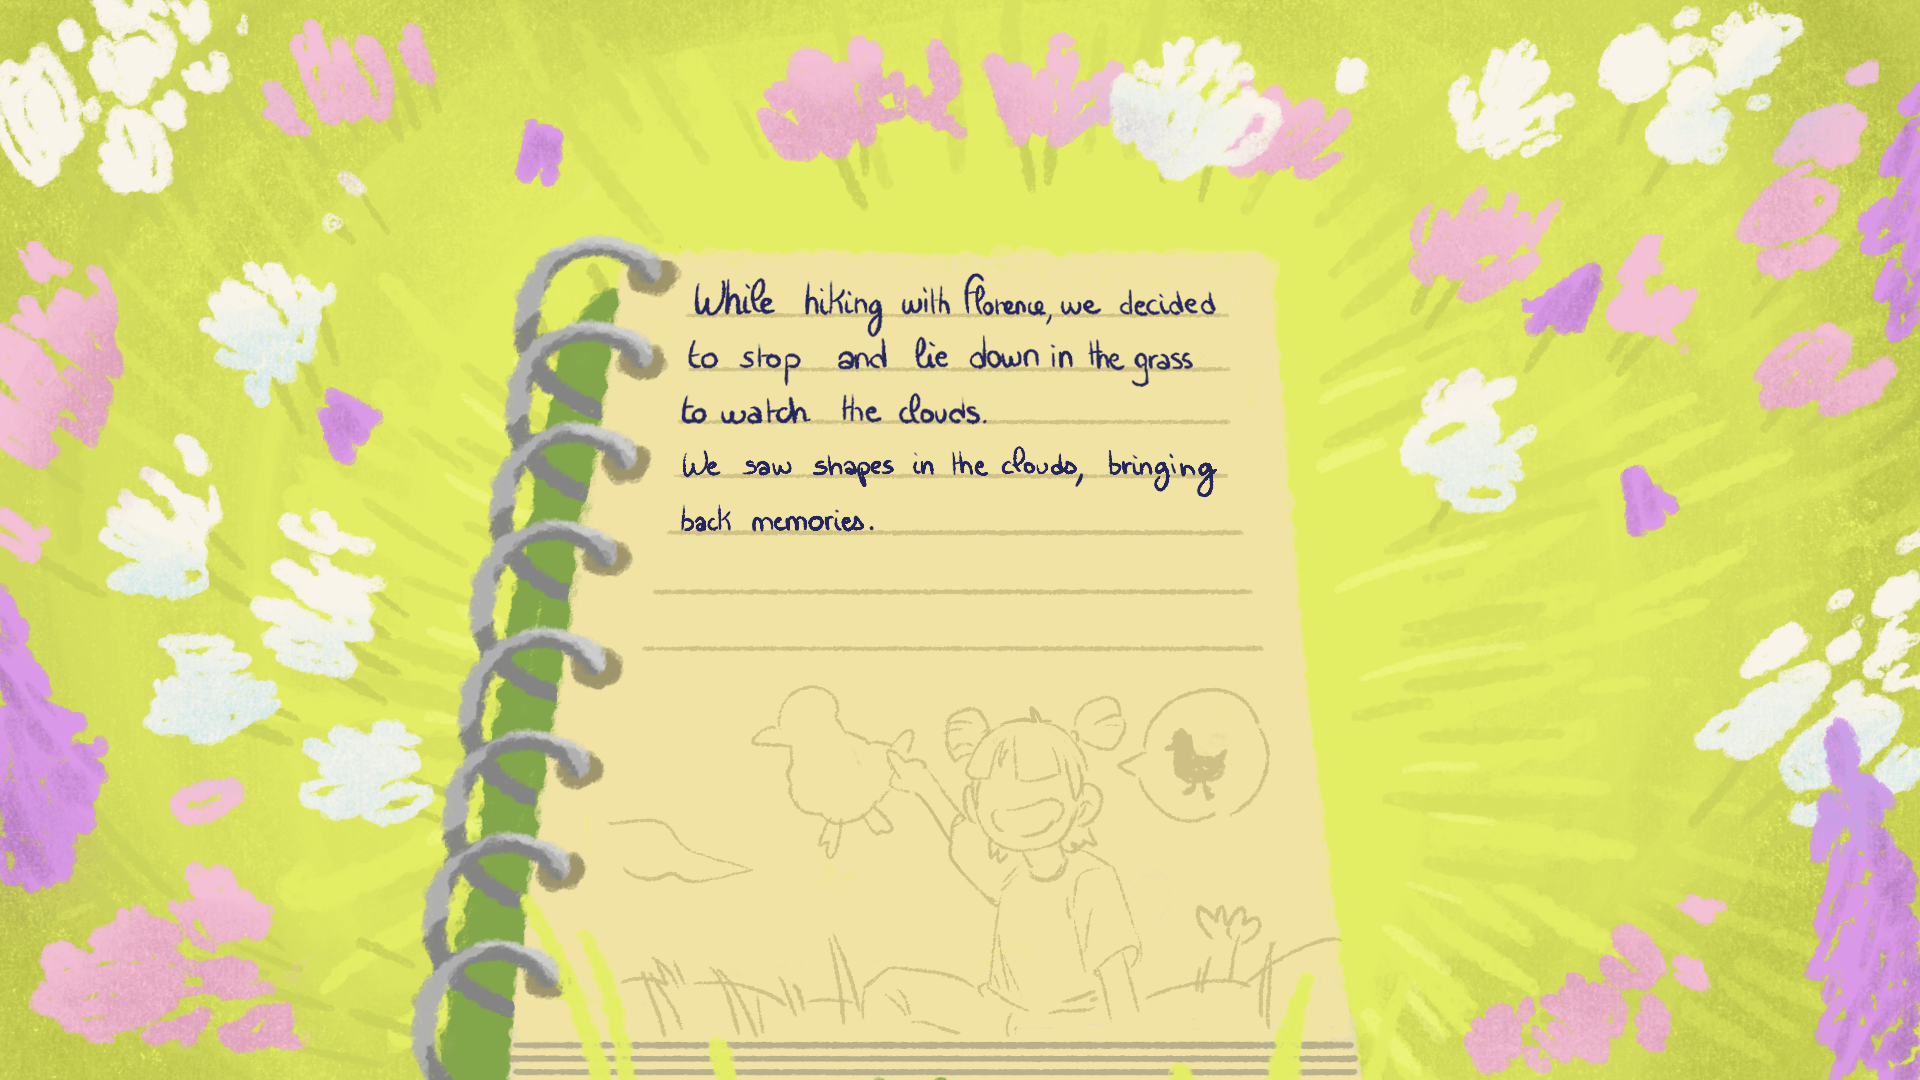 While hiking with Florence, we decided
to stop and lie down in the grass
to watch the clouds.
We saw shapes in the clouds, bringing
back memories.